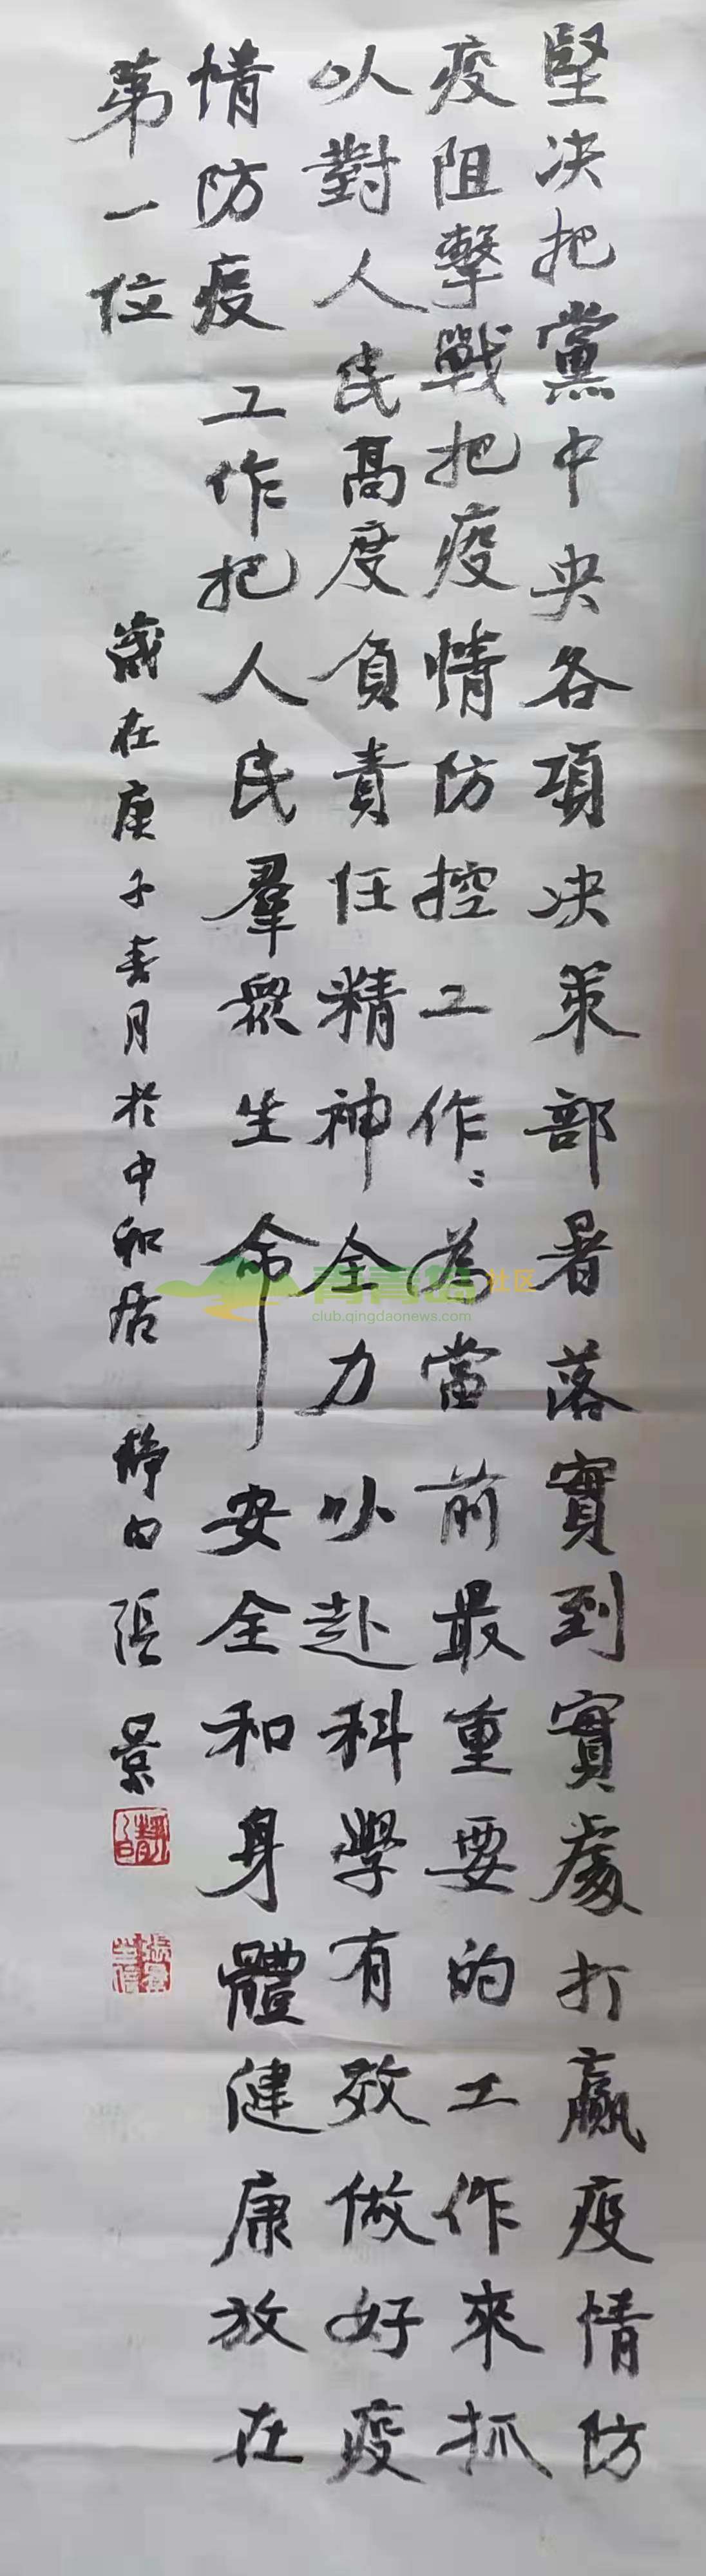 堅决把黨中央各項决策部署落實到實處打贏疫情防
疫阻擊戰把疫情防控工作〻為當前最重要的工作來抓
以對人民高度負責任精神全力以赴科學有效做好疫
情防疫工作把人民羣衆生命安全和身體健康放在
第一位
歲在庚子春月於中和居 靜白 張景
青青岛社区
club.qingdaonews.com